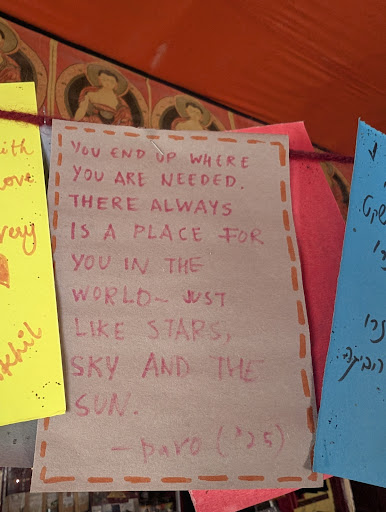 YOU END UP WHERE
YOU ARE NEEDED.
THERE ALWAYS
IS A PLACE FOR
YOU IN THE
WORLD- JUST
LIKE STARS,
SKY AND THE
SUN.
- paro ('25)
ith
ove